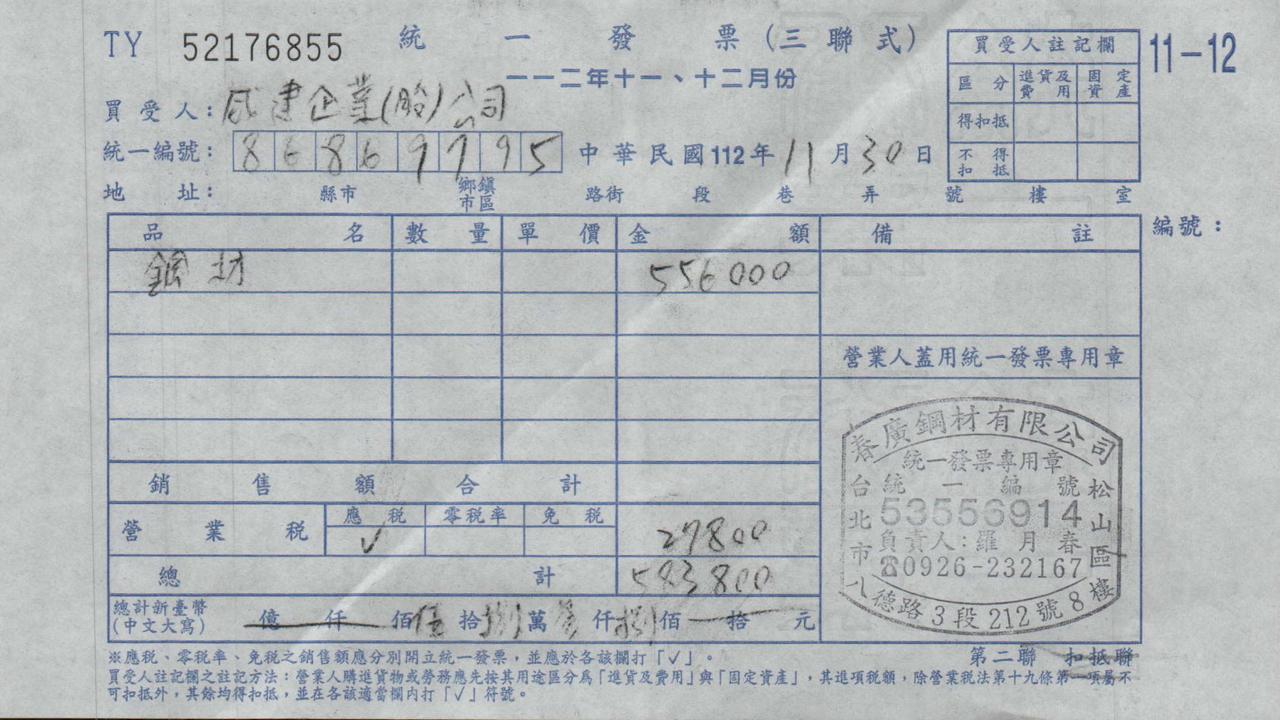 TY 52176855 統一發票(三聯式)
一一二年十一、十二月份
11-12
買受人註記欄
區分 進貨及費用 固定資產
得扣抵
不得扣抵
買受人:威建企業(股)公司
統一編號:86869795 中華民國112年11月30日
地址: 縣市 鄉鎮市區 路街 段 巷 弄 號 樓 室
編號:
品名 數量 單價 金額 備註
鋼材 556000
營業人蓋用統一發票專用章
銷售額合計
營業稅 應稅 零稅率 免稅
✓ 27800
總計 583800
總計新臺幣(中文大寫) 億 仟 佰伍拾捌萬叁仟捌佰 拾 元
春廣鋼材有限公司
統一發票專用章
統一編號
53556914
負責人:羅月春
☎0926-232167
台北市松山區八德路3段212號8樓
第二聯 扣抵聯
※應稅、零稅率、免稅之銷售額應分別開立統一發票,並應於各該欄打「✓」。
買受人註記欄之註記方法:營業人購進貨物或勞務應先按其用途區分為「進貨及費用」與「固定資產」,其進項稅額,除營業稅法第十九條第一項屬不
可扣抵外,其餘均得扣抵,並在各該適當欄內打「✓」符號。